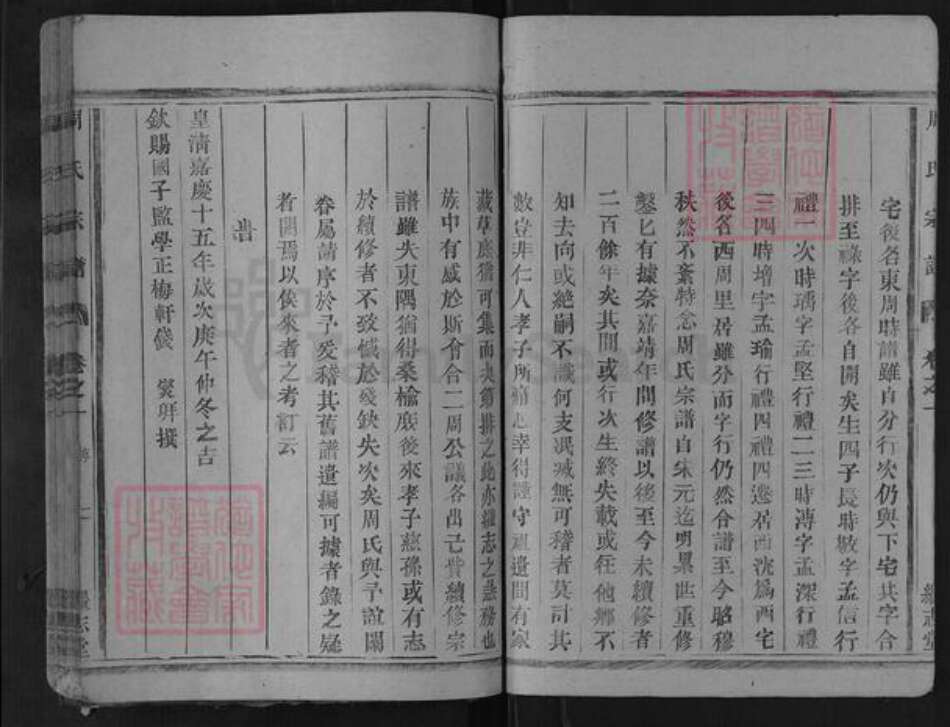 周氏宗譜 卷之一
宅後各東周時譜雖自分行次仍與下宅共字合
排至祿字後各自開矣生四子長時敏字孟信行
禮一次時瑀字孟堅行禮二三時溥字孟深行禮
三四時增字孟瑜行禮四禮四遷居西沈爲西宅
後各西周里居雖分而字行仍然合譜至今昭穆
秩然不紊特念周氏宗譜自宋元迄明累世重修
鑿匕有據奈嘉靖年間修譜以後至今未續修者
二百餘年矣其間或行次生終失載或徃他鄉不
知去向或絶嗣不識何支泯滅無可稽者莫計其
數豈非仁人孝子所痛心幸得謹守祖遺間有家
藏草底猶可集而次第排之此亦繼志之急務也
族中有感於斯會合二周公議各出己貲續修宗
譜雖失東隅猶得桑榆庶後來孝子慈孫或有志
於續修者不致憾於殘缺失次矣周氏與予誼關
眷屬請序於予爰稽其舊譜遺編可據者錄之疑
者闕焉以俟來者之考訂云
告
皇清嘉慶十五年歲次庚午仲冬之吉
欽賜國子監學正梅軒 撰
周氏宗譜 卷之一